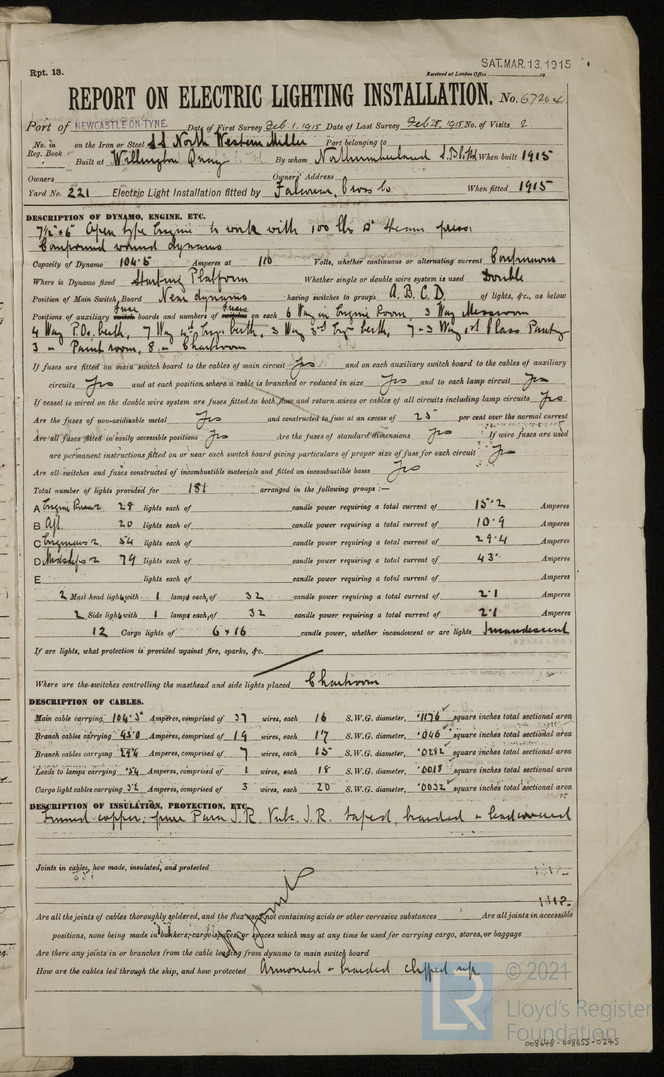 SAT. MAR. 13. 1915
Rpt. 13.
Received at London Office 19
REPORT ON ELECTRIC LIGHTING INSTALLATION. No. 67264
Port of NEWCASTLE-ON-TYNE Date of First Survey Feb. 1. 1915 Date of Last Survey Feb 25, 1915 No. of Visits 2
No. in Reg. Book on the Iron or Steel S.S. North Western Miller Port belonging to
Built at Willington Quay By whom Northumberland S.B. Co Ld When built 1915
Owners Owners' Address
Yard No. 221 Electric Light Installation fitted by Falconer, Cross & Co When fitted 1915
DESCRIPTION OF DYNAMO, ENGINE, ETC.
7½ × 5 Open type Engine to work with 100 lbs steam press:
Compound wound dynamo
Capacity of Dynamo 104.5 Amperes at 110 Volts, whether continuous or alternating current Continuous
Where is Dynamo fixed Starting Platform Whether single or double wire system is used Double
Position of Main Switch Board Near dynamo having switches to groups A. B. C. D. of lights, &c., as below
Positions of auxiliary fuse switch boards and numbers of fuses switches on each 6 Way in Engine Room, 3 Way Messroom
4 Way P.O. berth, 7 Way 4th Engs berth, 3 Way 3rd Engr berth, 7 - 3 Way 1st Class Pantry
3 - Paint room, 8 - Chartroom
If fuses are fitted on main switch board to the cables of main circuit Yes and on each auxiliary switch board to the cables of auxiliary
circuits Yes and at each position where a cable is branched or reduced in size Yes and to each lamp circuit Yes
If vessel is wired on the double wire system are fuses fitted to both flow and return wires or cables of all circuits including lamp circuits Yes
Are the fuses of non-oxidizable metal Yes and constructed to fuse at an excess of 25 per cent over the normal current
Are all fuses fitted in easily accessible positions Yes Are the fuses of standard dimensions Yes If wire fuses are used
are permanent instructions fitted on or near each switch board giving particulars of proper size of fuse for each circuit Yes
Are all switches and fuses constructed of incombustible materials and fitted on incombustible bases Yes
Total number of lights provided for 181 arranged in the following groups :—
A Engine Room 28 lights each of candle power requiring a total current of 15.2 Amperes
B Aft 20 lights each of candle power requiring a total current of 10.9 Amperes
C Engineers 54 lights each of candle power requiring a total current of 29.4 Amperes
D Midships 79 lights each of candle power requiring a total current of 43. Amperes
E lights each of candle power requiring a total current of Amperes
2 Mast head light with 1 lamps each, of 32 candle power requiring a total current of 2.1 Amperes
2 Side light with 1 lamps each, of 32 candle power requiring a total current of 2.1 Amperes
12 Cargo lights of 6 × 16 candle power, whether incandescent or arc lights Incandescent
If arc lights, what protection is provided against fire, sparks, &c.
Where are the switches controlling the masthead and side lights placed Chartroom
DESCRIPTION OF CABLES.
Main cable carrying 104.5 Amperes, comprised of 37 wires, each 16 S.W.G. diameter, .1176 square inches total sectional area
Branch cables carrying 43.0 Amperes, comprised of 19 wires, each 17 S.W.G. diameter, .046 square inches total sectional area
Branch cables carrying 29.4 Amperes, comprised of 7 wires, each 15 S.W.G. diameter, .0282 square inches total sectional area
Leads to lamps carrying .54 Amperes, comprised of 1 wires, each 18 S.W.G. diameter, .0018 square inches total sectional area
Cargo light cables carrying 3.2 Amperes, comprised of 3 wires, each 20 S.W.G. diameter, .0032 square inches total sectional area
DESCRIPTION OF INSULATION, PROTECTION, ETC.
Tinned copper, pure Para I.R. Vulc. I.R. taped, braided & lead covered
Joints in cables, how made, insulated, and protected
No joints
Are all the joints of cables thoroughly soldered, and the flux used not containing acids or other corrosive substances Are all joints in accessible
positions, none being made in bunkers, cargo spaces, or spaces which may at any time be used for carrying cargo, stores, or baggage
Are there any joints in or branches from the cable leading from dynamo to main switch board
How are the cables led through the ship, and how protected Armoured & braided clipped up
© 2021
LR
Lloyd's Register
Foundation
008648-008655-0245